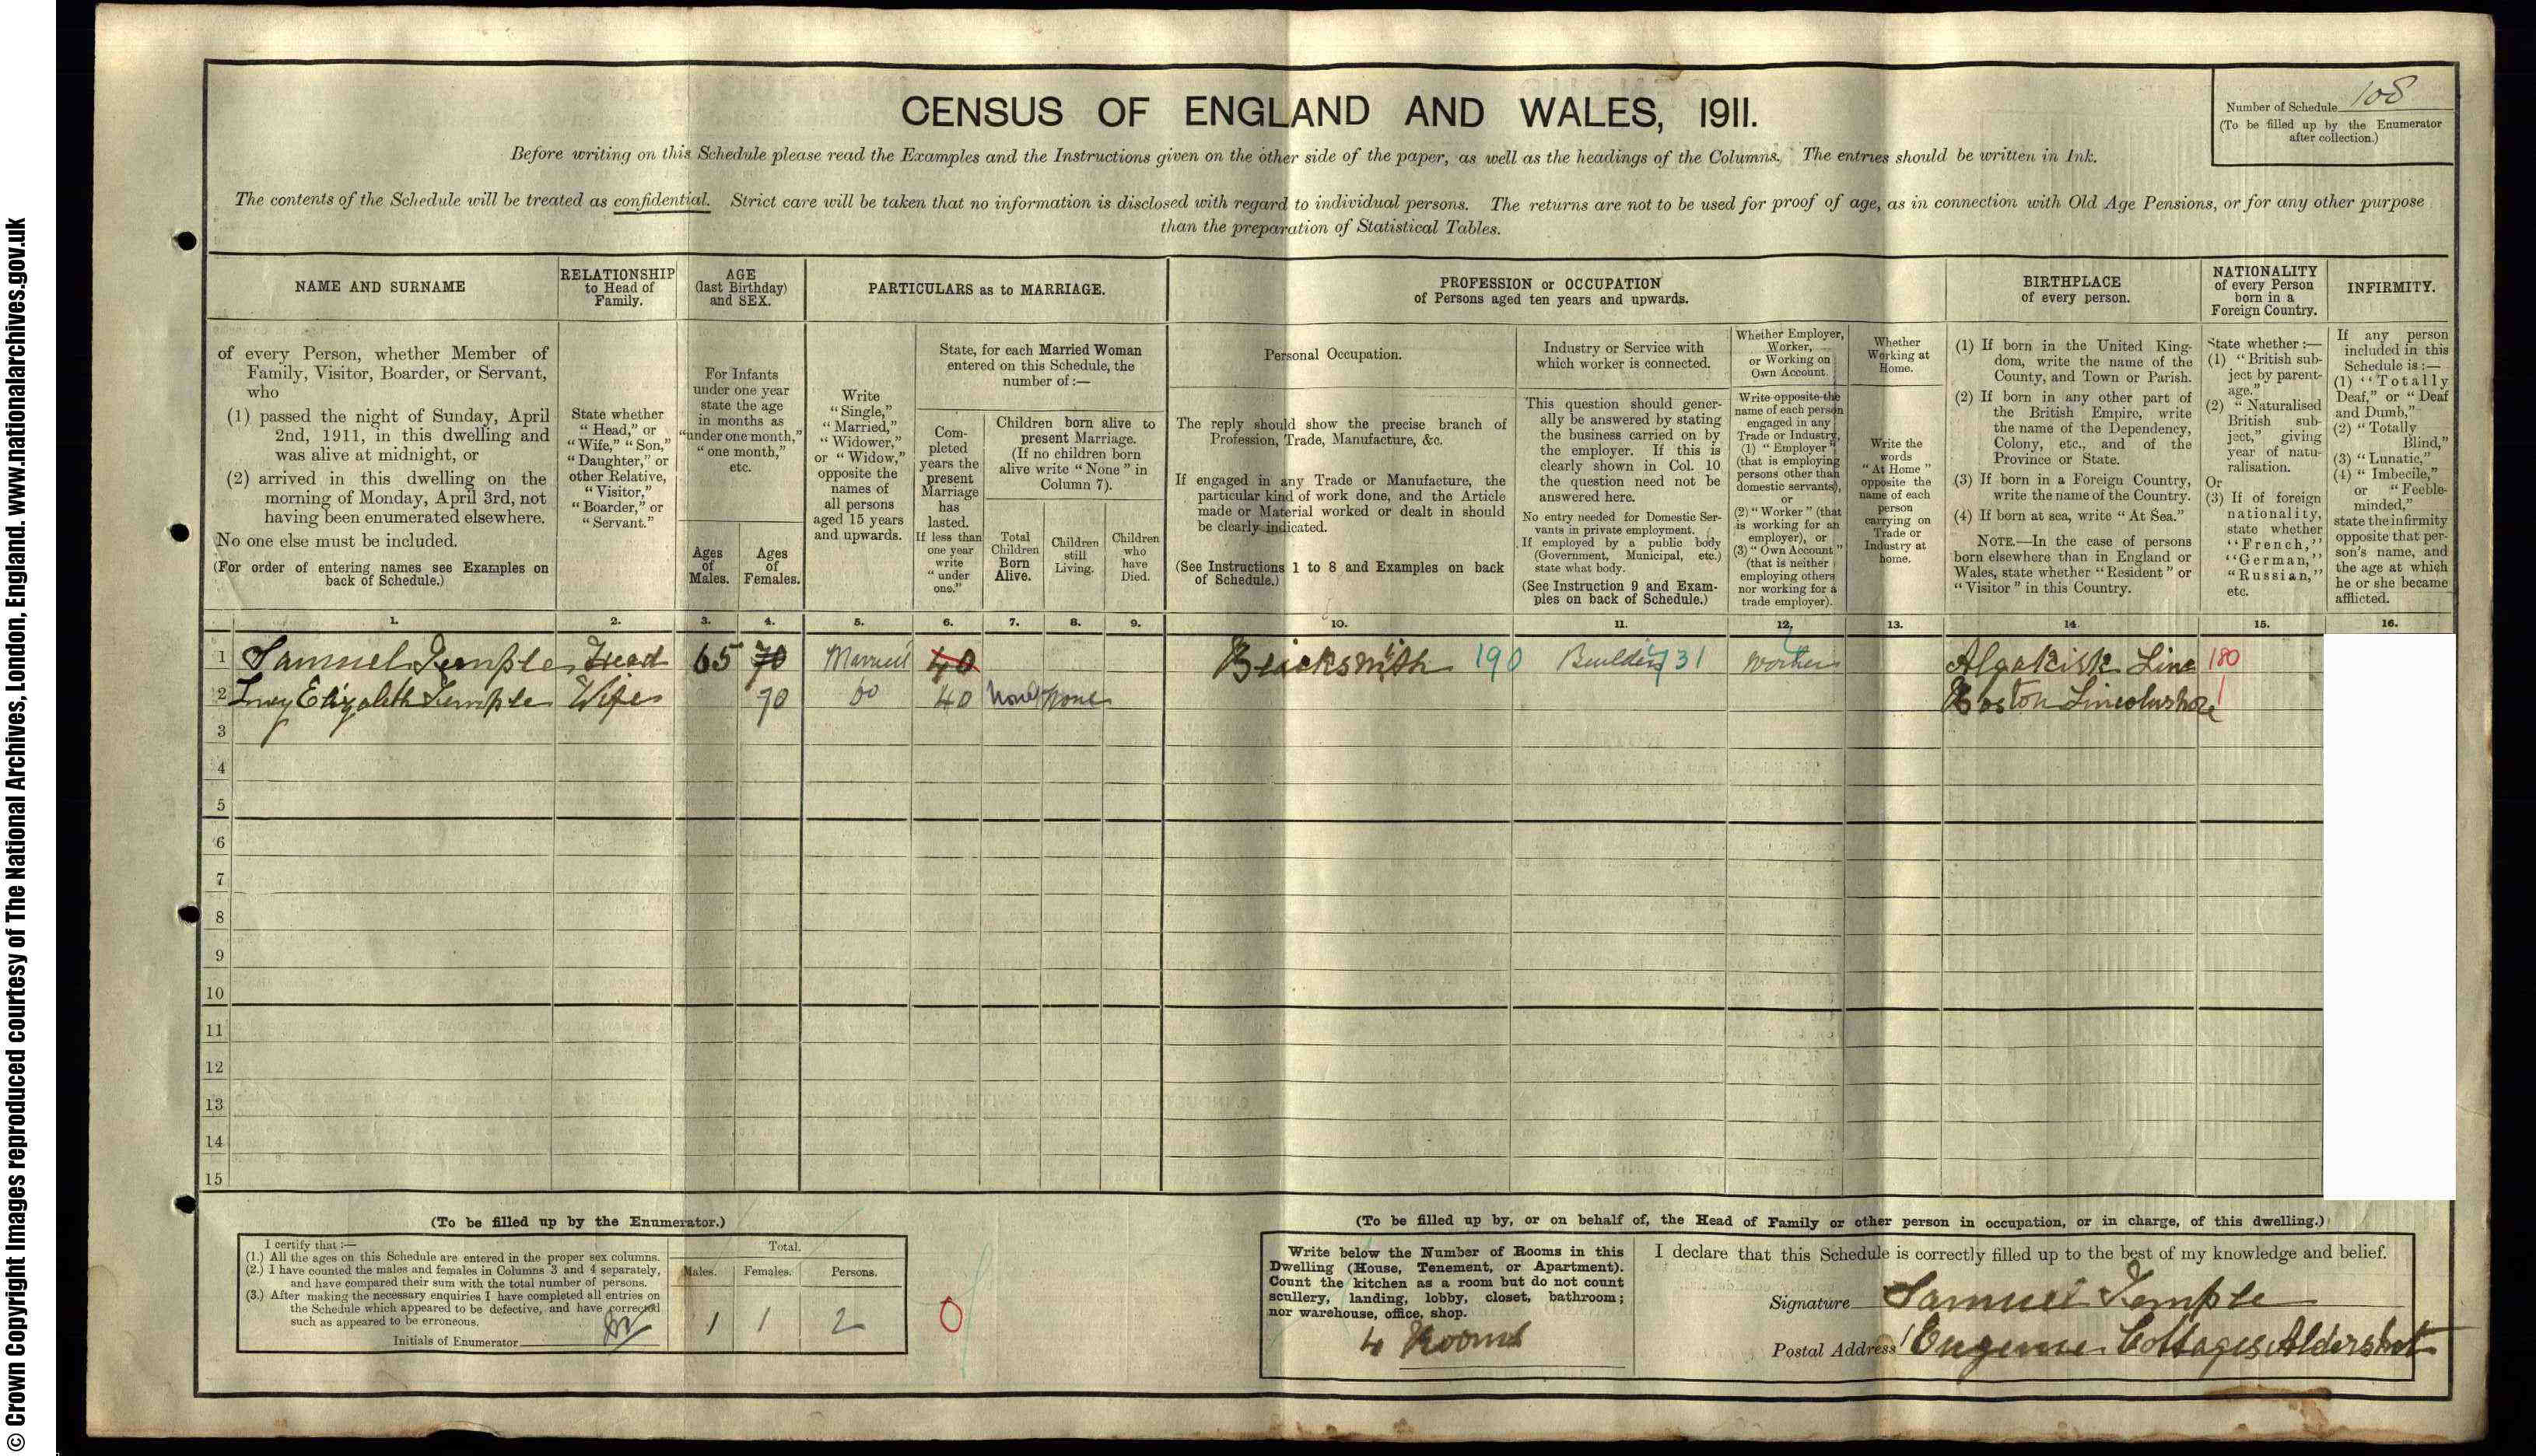 © Crown Copyright Images reproduced courtesy of The National Archives, London, England. www.nationalarchives.gov.uk
CENSUS OF ENGLAND AND WALES, 1911.
Number of Schedule 108
(To be filled up by the Enumerator
after collection.)
Before writing on this Schedule please read the Examples and the Instructions given on the other side of the paper, as well as the headings of the Columns. The entries should be written in Ink.
The contents of the Schedule will be treated as confidential. Strict care will be taken that no information is disclosed with regard to individual persons. The returns are not to be used for proof of age, as in connection with Old Age Pensions, or for any other purpose
than the preparation of Statistical Tables.
NAME AND SURNAME
of every Person, whether Member of
Family, Visitor, Boarder, or Servant,
who
(1) passed the night of Sunday, April
2nd, 1911, in this dwelling and
was alive at midnight, or
(2) arrived in this dwelling on the
morning of Monday, April 3rd, not
having been enumerated elsewhere.
No one else must be included.
(For order of entering names see Examples on
back of Schedule.)
RELATIONSHIP
to Head of
Family.
State whether
"Head," or
"Wife," "Son,"
"Daughter," or
other Relative,
"Visitor,"
"Boarder," or
"Servant."
AGE
(last Birthday)
and SEX.
For Infants
under one year
state the age
in months as
"under one month,"
"one month,"
etc.
Ages
of
Males.
Ages
of
Females.
PARTICULARS as to MARRIAGE.
Write
"Single,"
"Married,"
"Widower,"
or "Widow,"
opposite the
names of
all persons
aged 15 years
and upwards.
State, for each Married Woman
entered on this Schedule, the
number of:—
Com-
pleted
years the
present
Marriage
has
lasted.
If less than
one year
write
"under
one."
Children born alive to
present Marriage.
(If no children born
alive write "None" in
Column 7).
Total
Children
Born
Alive.
Children
still
Living.
Children
who
have
Died.
PROFESSION or OCCUPATION
of Persons aged ten years and upwards.
Personal Occupation.
The reply should show the precise branch of
Profession, Trade, Manufacture, &c.
If engaged in any Trade or Manufacture, the
particular kind of work done, and the Article
made or Material worked or dealt in should
be clearly indicated.
(See Instructions 1 to 8 and Examples on back
of Schedule.)
Industry or Service with
which worker is connected.
This question should gener-
ally be answered by stating
the business carried on by
the employer. If this is
clearly shown in Col. 10
the question need not be
answered here.
No entry needed for Domestic Ser-
vants in private employment.
If employed by a public body
(Government, Municipal, etc.)
state what body.
(See Instruction 9 and Exam-
ples on back of Schedule.)
Whether Employer,
Worker,
or Working on
Own Account.
Write opposite the
name of each person
engaged in any
Trade or Industry,
(1) "Employer"
(that is employing
persons other than
domestic servants),
or
(2) "Worker" (that
is working for an
employer), or
(3) "Own Account"
(that is neither
employing others
nor working for a
trade employer).
Whether
Working at
Home.
Write the
words
"At Home"
opposite the
name of each
person
carrying on
Trade or
Industry at
home.
BIRTHPLACE
of every person.
(1) If born in the United King-
dom, write the name of the
County, and Town or Parish.
(2) If born in any other part of
the British Empire, write
the name of the Dependency,
Colony, etc., and of the
Province or State.
(3) If born in a Foreign Country,
write the name of the Country.
(4) If born at sea, write "At Sea."
NOTE.—In the case of persons
born elsewhere than in England or
Wales, state whether "Resident" or
"Visitor" in this Country.
NATIONALITY
of every Person
born in a
Foreign Country.
State whether:—
(1) "British sub-
ject by parent-
age."
(2) "Naturalised
British sub-
ject," giving
year of natu-
ralisation.
Or
(3) If of foreign
nationality,
state whether
"French,"
"German,"
"Russian,"
etc.
INFIRMITY.
If any person
included in this
Schedule is:—
(1) "Totally
Deaf," or "Deaf
and Dumb,"
(2) "Totally
Blind,"
(3) "Lunatic,"
(4) "Imbecile,"
or "Feeble-
minded,"
state the infirmity
opposite that per-
son's name, and
the age at which
he or she became
afflicted.
1. 2. 3. 4. 5. 6. 7. 8. 9. 10. 11. 12. 13. 14. 15. 16.
1 Samuel Temple Head 65 70 Married 40 Blacksmith 190 Builders 731 Worker Algakirk Linc 180
2 Lucy Elizabeth Temple Wife 70 do 40 None None Boston Lincolnshore
3
4
5
6
7
8
9
10
11
12
13
14
15
(To be filled up by the Enumerator.)
I certify that:—
(1.) All the ages on this Schedule are entered in the proper sex columns.
(2.) I have counted the males and females in Columns 3 and 4 separately,
and have compared their sum with the total number of persons.
(3.) After making the necessary enquiries I have completed all entries on
the Schedule which appeared to be defective, and have corrected
such as appeared to be erroneous.
Initials of Enumerator
Total.
Males. Females. Persons.
1 1 2
0
(To be filled up by, or on behalf of, the Head of Family or other person in occupation, or in charge, of this dwelling.)
Write below the Number of Rooms in this
Dwelling (House, Tenement, or Apartment).
Count the kitchen as a room but do not count
scullery, landing, lobby, closet, bathroom;
nor warehouse, office, shop.
4 Rooms
I declare that this Schedule is correctly filled up to the best of my knowledge and belief.
Signature Samuel Temple
Postal Address 1 Eugenie Cottages Aldershot